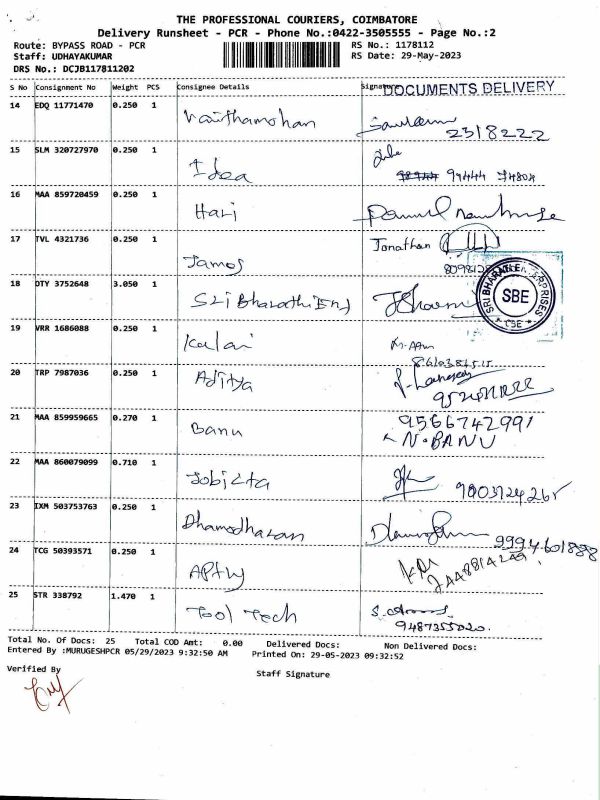 THE PROFESSIONAL COURIERS, COIMBATORE
Delivery Runsheet - PCR - Phone No.:0422-3505555 - Page No.:2
Route: BYPASS ROAD - PCR RS No.: 1178112
Staff: UDHAYAKUMAR RS Date: 29-May-2023
DRS No.: DCJB117811202
S No Consignment No Weight PCS Consignee Details Signature DOCUMENTS DELIVERY
14 EDQ 11771470 0.250 1 Vaithamohan
2318222
15 SLM 320727970 0.250 1 Idea
99444 74804
16 MAA 859720459 0.250 1 Hari
17 TVL 4321736 0.250 1 James Jonathan
18 OTY 3752648 3.050 1 Sri Bharathi Ent
SRI BHARATH ENTERPRISES
SBE
CBE
19 VRR 1686088 0.250 1 Kalai
20 TRP 7987036 0.250 1 Aditya
21 MAA 859959665 0.270 1 Banu 9566742991
N.BANU
22 MAA 860079099 0.710 1
23 IXM 503753763 0.250 1 Dhamodharan
9994601888
24 TCG 50393571 0.250 1
25 STR 338792 1.470 1 Tool Tech
9487355020
Total No. Of Docs: 25 Total COD Amt: 0.00 Delivered Docs: Non Delivered Docs:
Entered By :MURUGESHPCR 05/29/2023 9:32:50 AM Printed On: 29-05-2023 09:32:52
Verified By Staff Signature